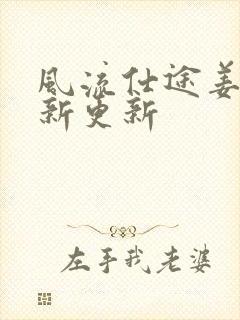 風流仕途姜
新更新
左手我老婆